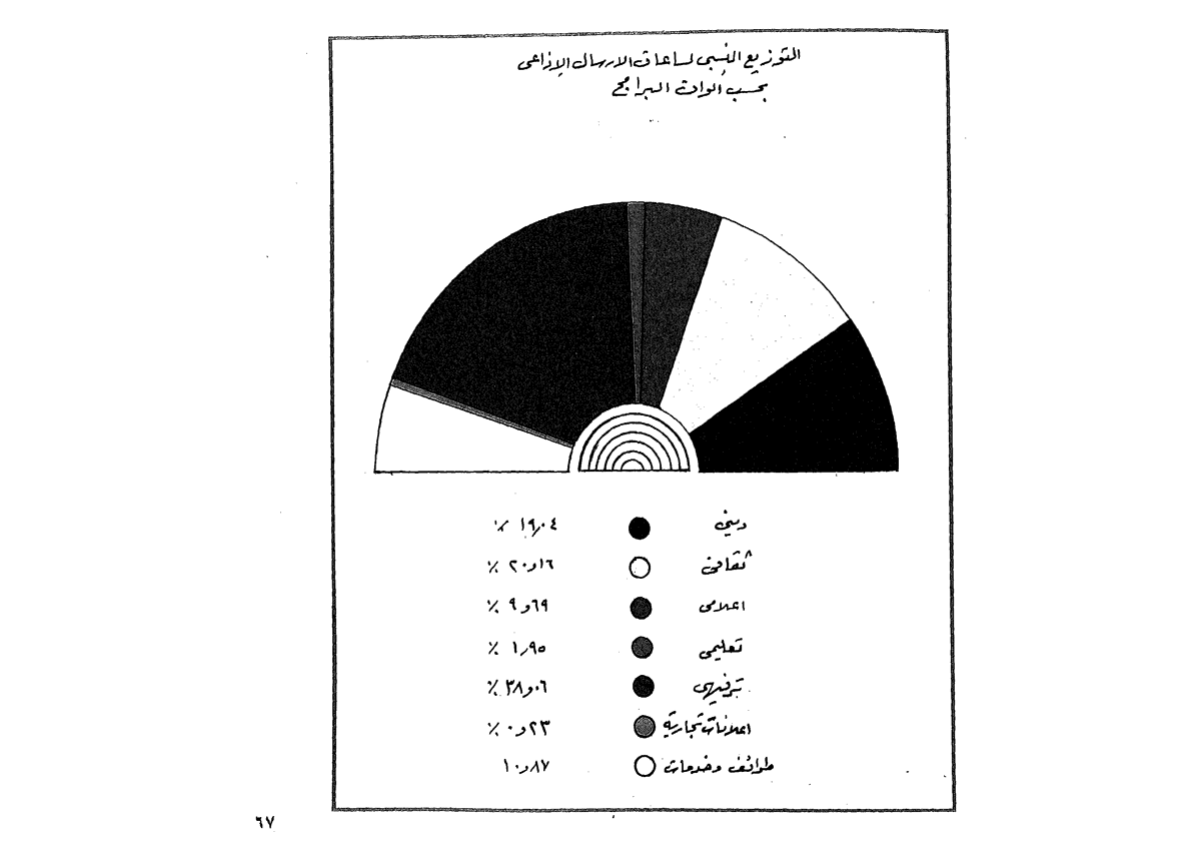 التوزيع النسبى لساعات الارسال الإذاعى
بحسب ألوان البرامج
دينى ١٩٫٠٤ ٪
ثقافى ١٦و٢٠ ٪
اعلامى ٦٩و٩ ٪
تعليمى ١٫٩٥ ٪
ترفيهى ٠٦و٣٨ ٪
اعلانات تجارية ٢٣و٠ ٪
طوائف وخدمات ٨٧و١٠
٦٧